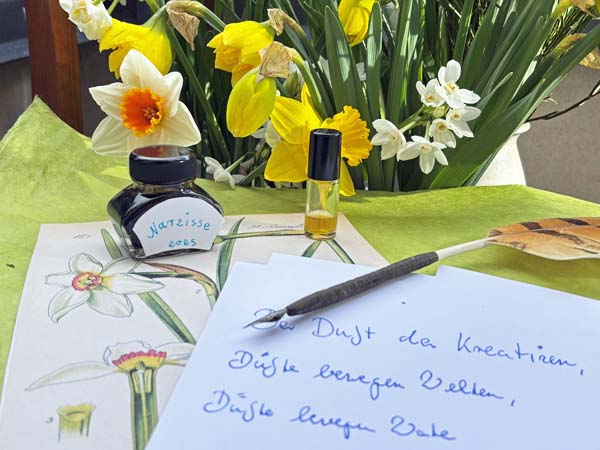 Narzisse
2025
Der Duft der Kreativen,
Düfte bewegen Welten,
Düfte bewegen Worte